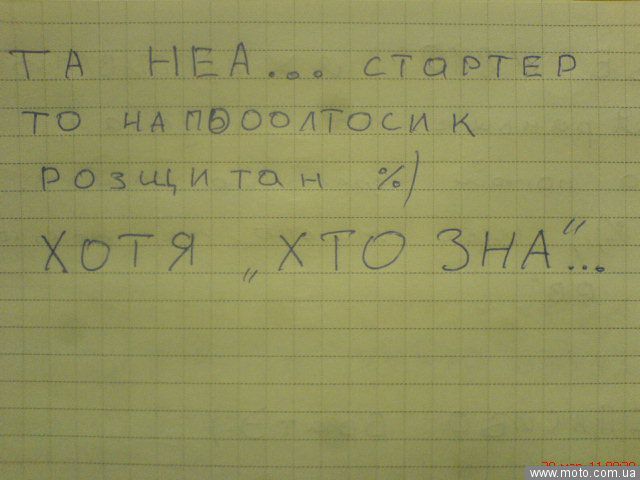 ТА НЕА... СТАРТЕР
ТО НАПОООЛТОСИК
РОЗЩИТАН %)
ХОТЯ „ХТО ЗНА"...
www.moto.com.ua